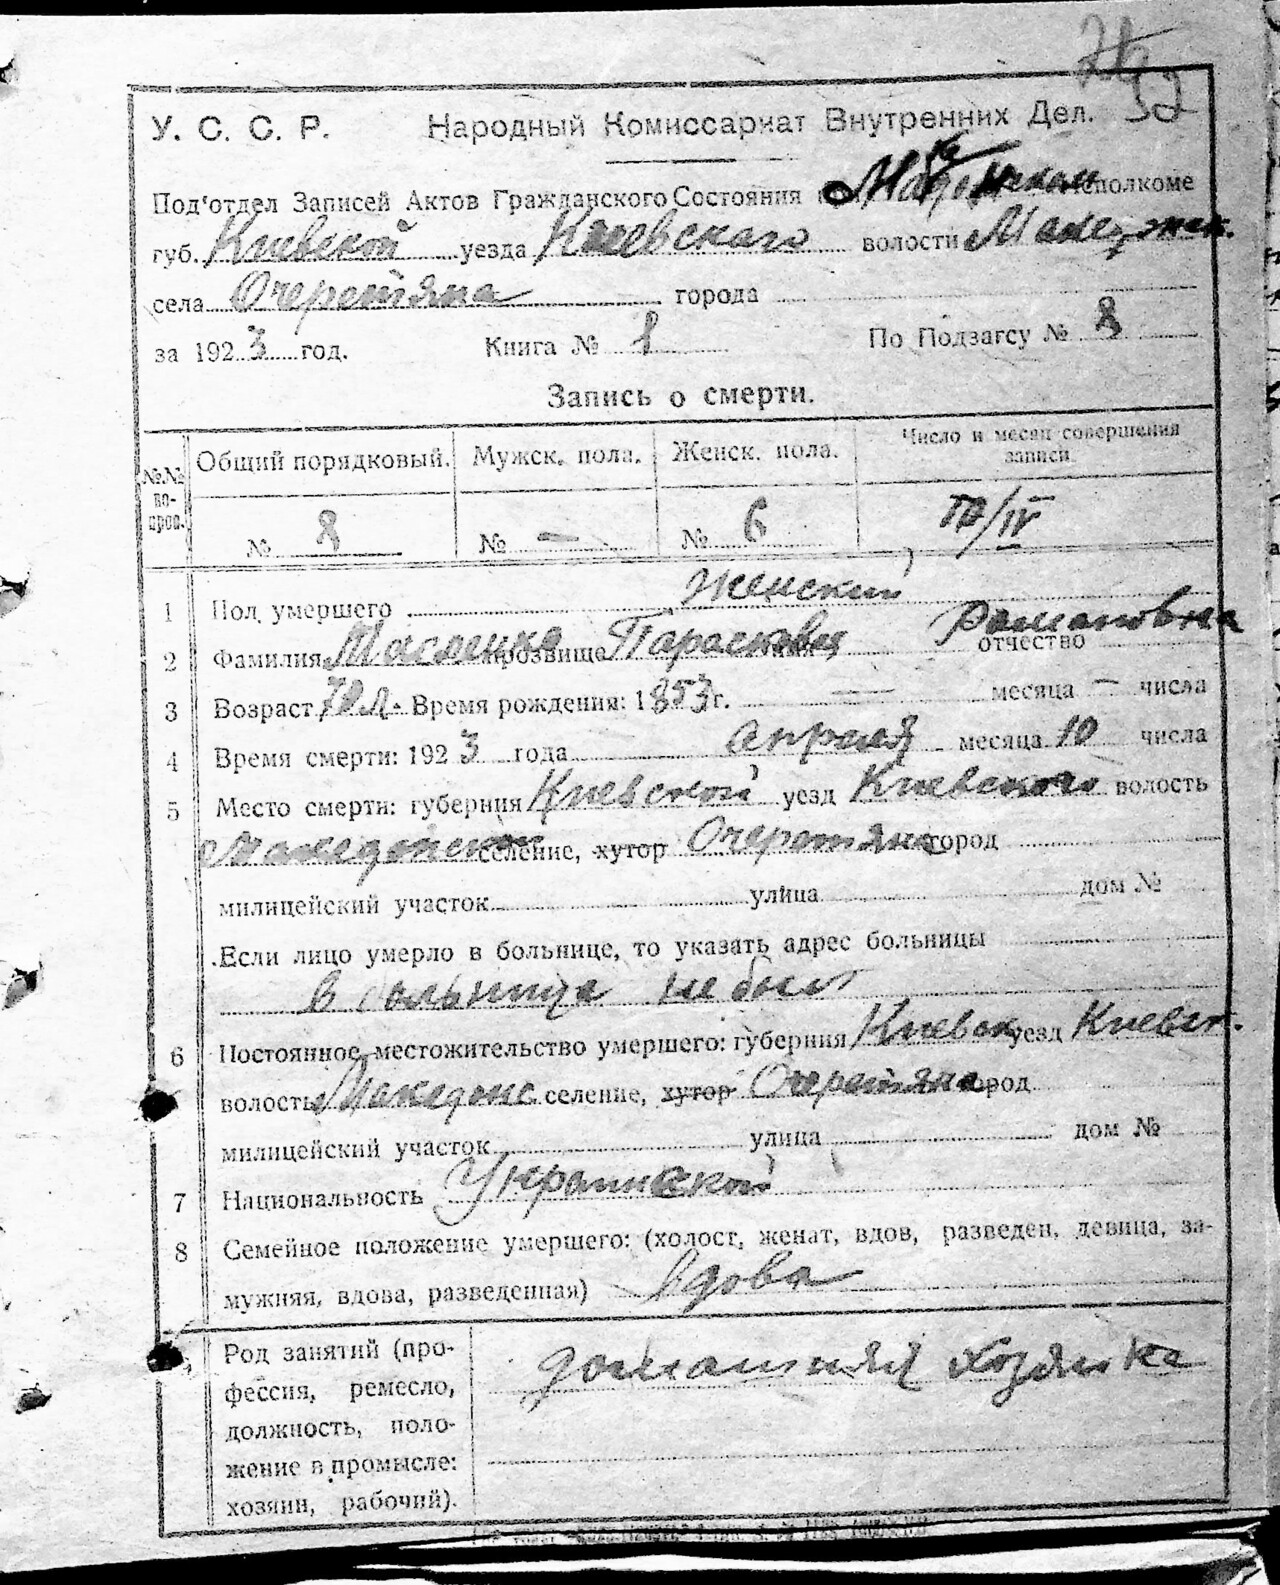 32
У. С. С. Р. Народный Комиссариат Внутренних Дел.
Под‘отдел Записей Актов Гражданского Состояния исполкоме
губ. Киевской уезда Киевскаго волости Македонск.
села Очеретяна города
за 1923 год. Книга № 1 По Подзагсу № 8
Запись о смерти.
№№ вопрос. Общий порядковый. Мужск. пола. Женск. пола. Число и месяц совершения записи.
№ 8 № — № 6 /IV
1 Пол умершего Женский
2 Фамилия прозвище Параскева отчество Романовна
3 Возраст 70 л. Время рождения: 1853 г. — месяца — числа
4 Время смерти: 1923 года апреля месяца 10 числа
5 Место смерти: губерния Киевской уезд Киевского волость
Македонской селение, хутор Очеретяна город
милицейский участок улица дом №
Если лицо умерло в больнице, то указать адрес больницы
в больнице не был
6 Постоянное местожительство умершего: губерния Киевск уезд Киевск.
волость Македонс селение, хутор Очеретяна город
милицейский участок улица дом №
7 Национальность Украинской
8 Семейное положение умершего: (холост, женат, вдов, разведен, девица, за-
мужняя, вдова, разведенная) вдова
Род занятий (про- домашняя хозяйка
фессия, ремесло,
должность, поло-
жение в промысле:
хозяин, рабочий).